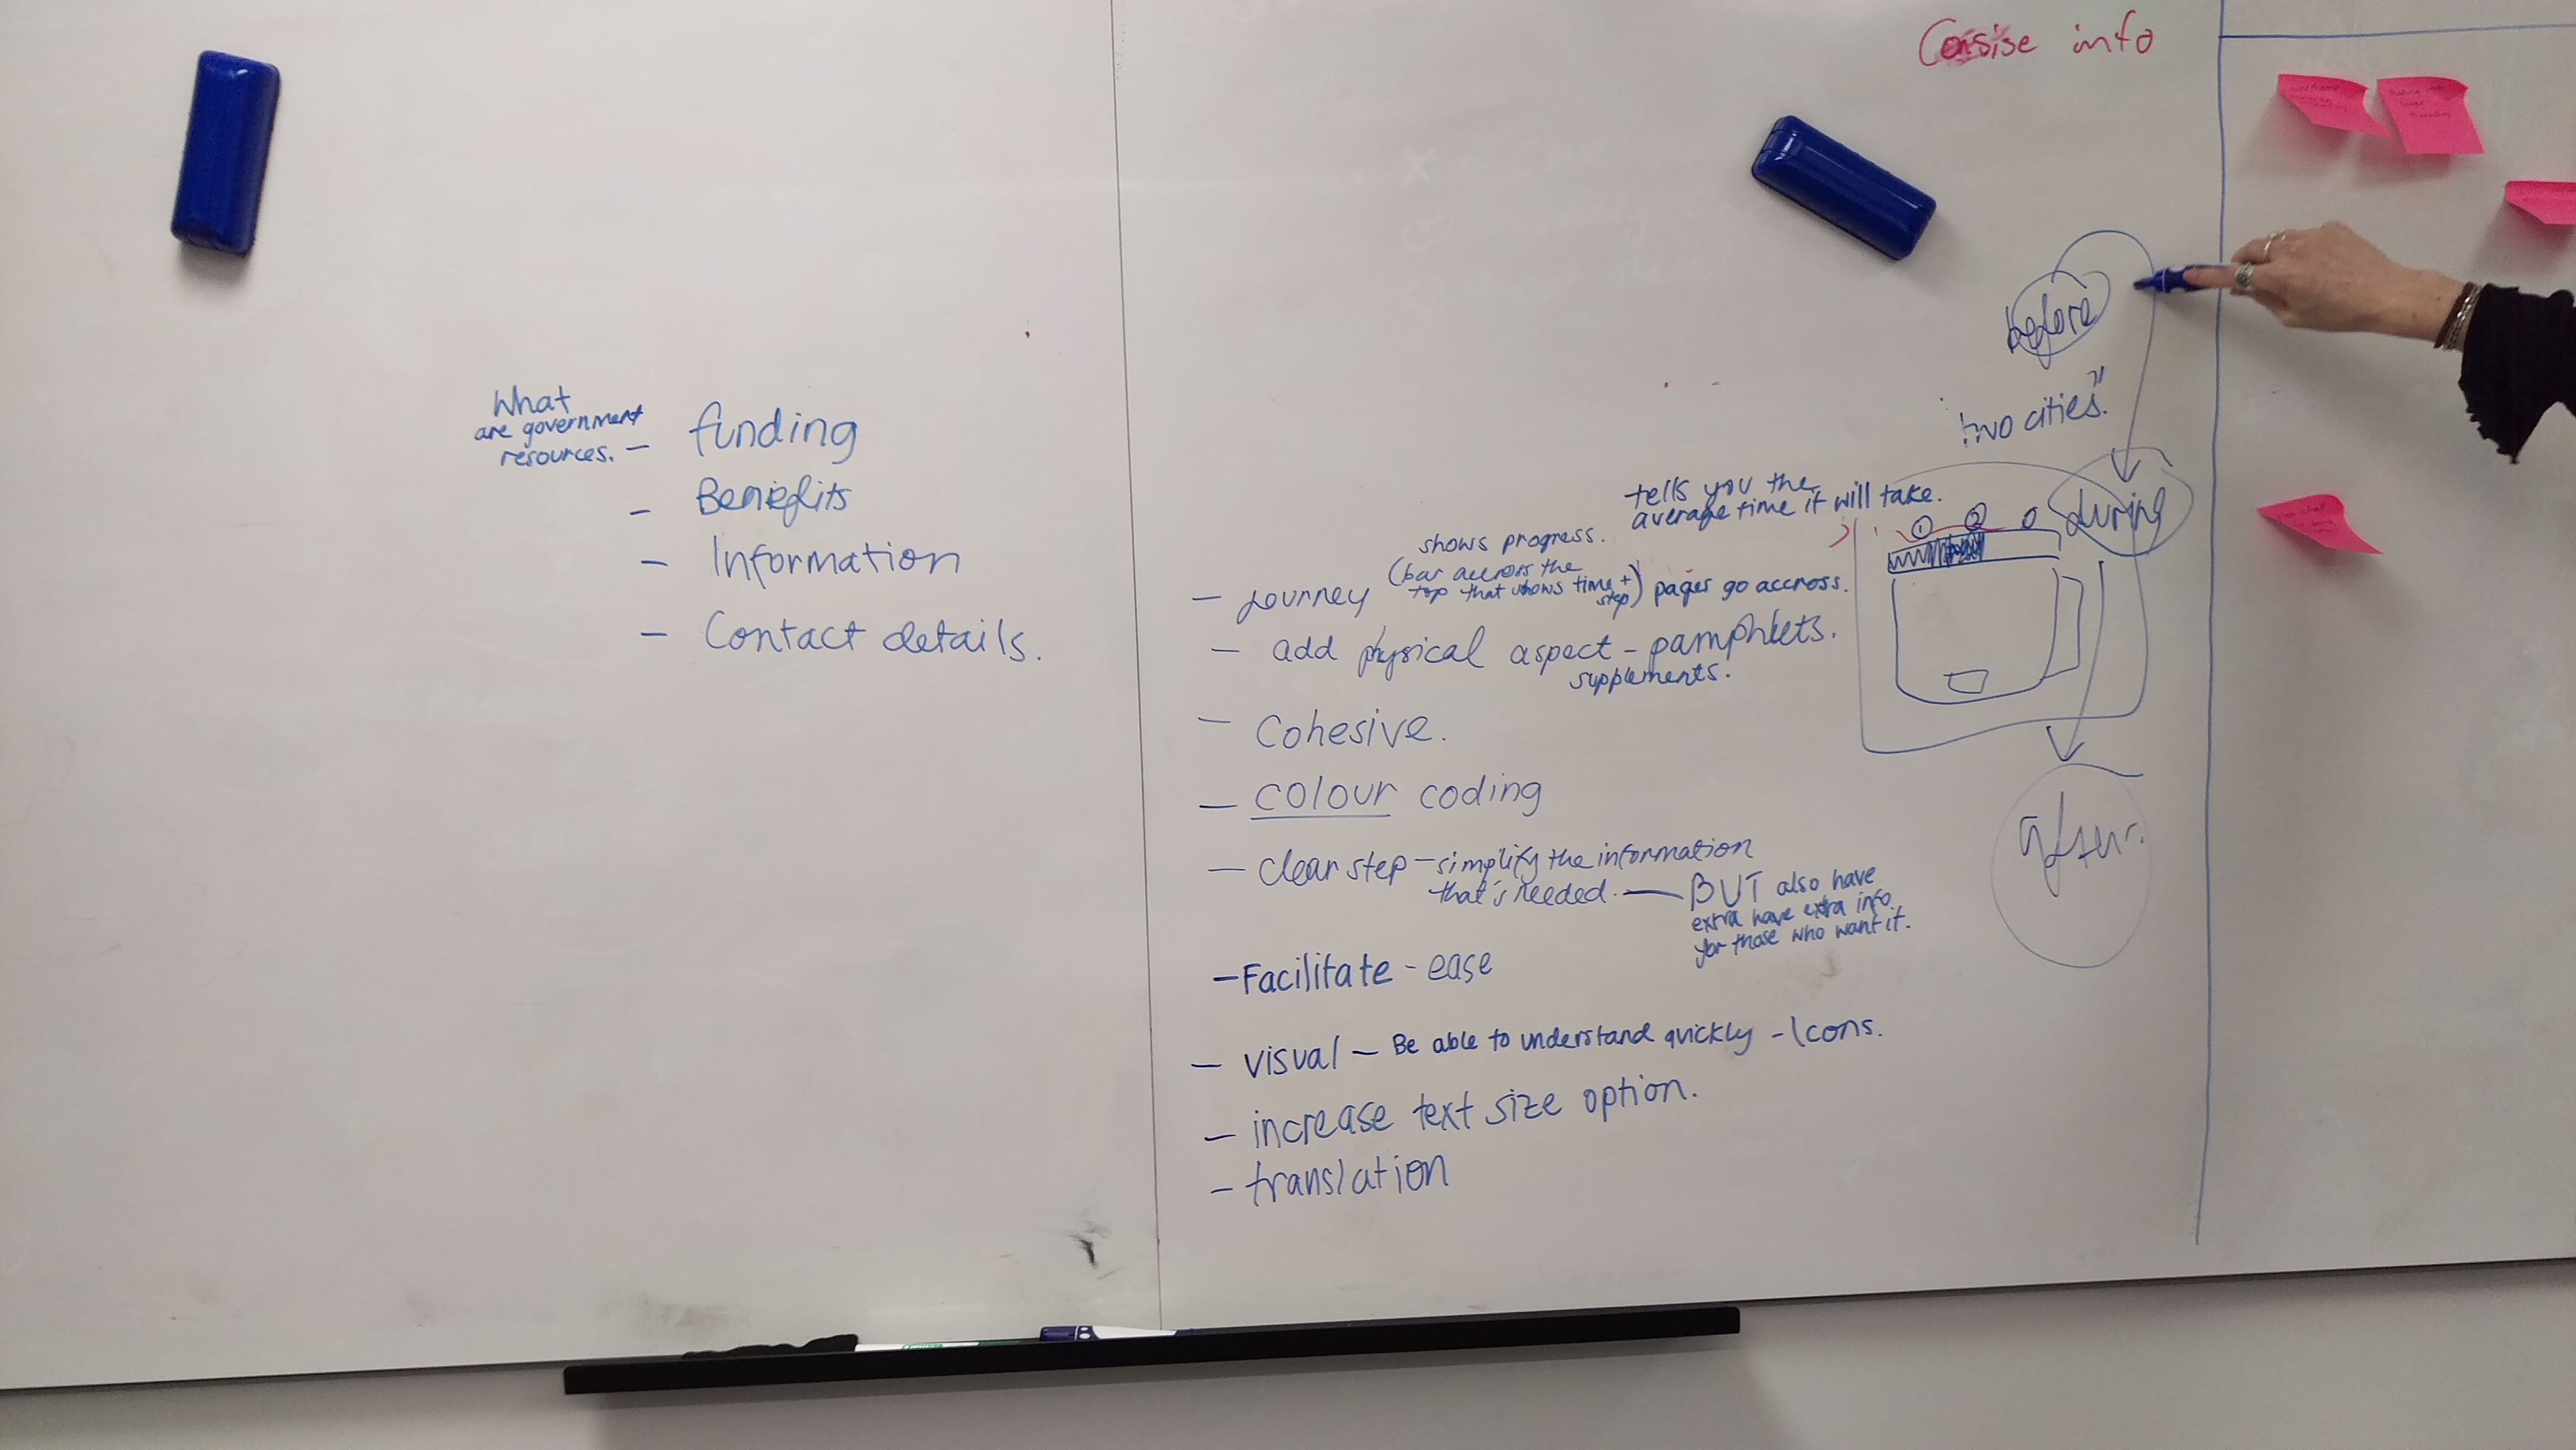 Consise info
before
two cities."
during
after.
What
are government
resources. - funding
- Benefits
- Information
- Contact details.
tells you the
average time it will take.
① ②
shows progress.
- journey (bar accross the
top that shows time +
step) pages go accross.
- add physical aspect - pamphlets.
supplements.
- Cohesive.
- colour coding
- clear step - simplify the information
that's needed. — BUT also have
extra have extra info.
for those who want it.
- Facilitate - ease
- visual - Be able to understand quickly - Icons.
- increase text size option.
- translation